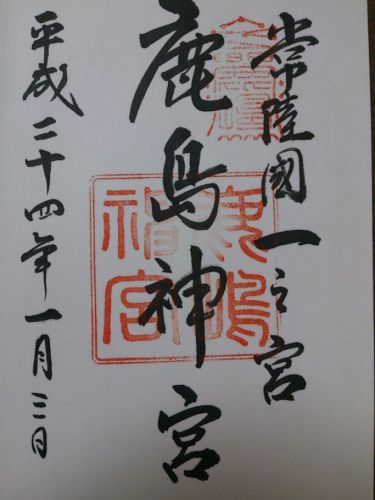 常陸國一之宮
鹿島神宮
平成二十四年一月三日
鹿嶋神宮